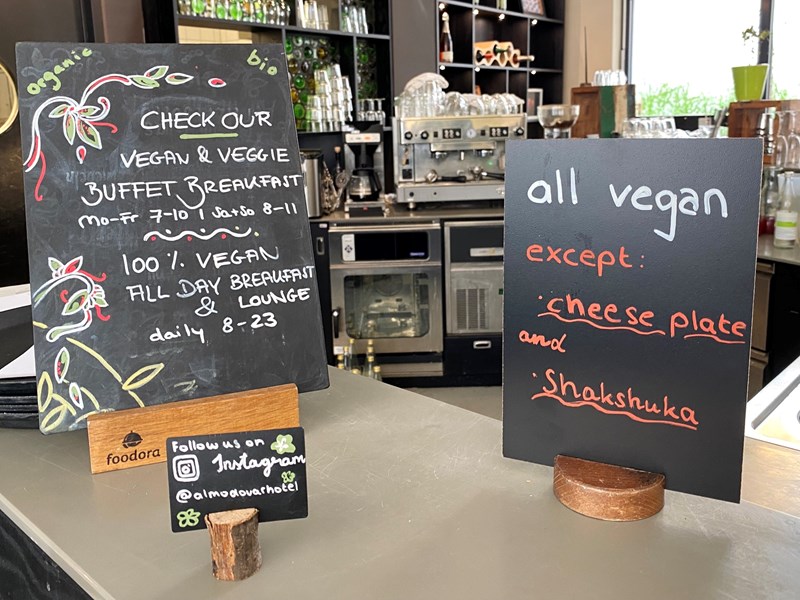 organic
bio
CHECK OUR
VEGAN & VEGGIE
BUFFET BREAKFAST
Mo-Fr 7-10 | Sa+So 8-11
100% VEGAN
ALL DAY BREAKFAST
& LOUNGE
daily 8-23
foodora
Follow us on
Instagram
@almodovarhotel
all vegan
except:
·cheese plate
and
·Shakshuka